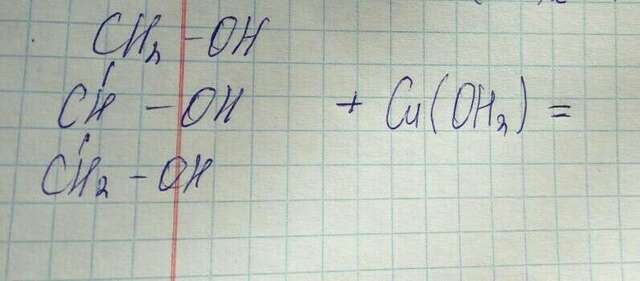 CH₂ - OH
CH - OH + Cu(OH₂) =
CH₂ - OH